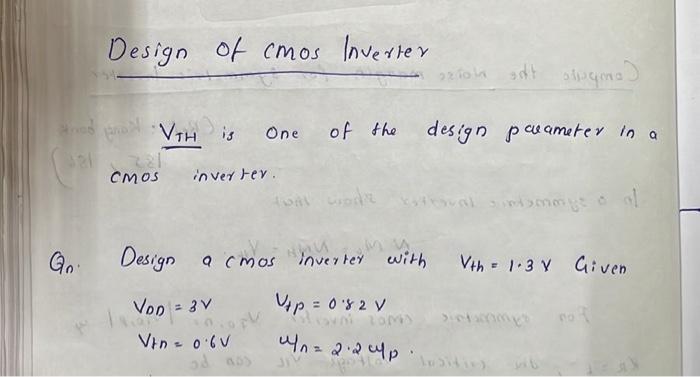 Design Of cmos Inverter
VTH is one of the design parameter in a
cmos inverter.
Qn. Design a cmos inverter with Vth = 1.3 V Given
VDD = 3V Vtp = 0.82 V
Vtn = 0.6V μn = 2.2 μp.